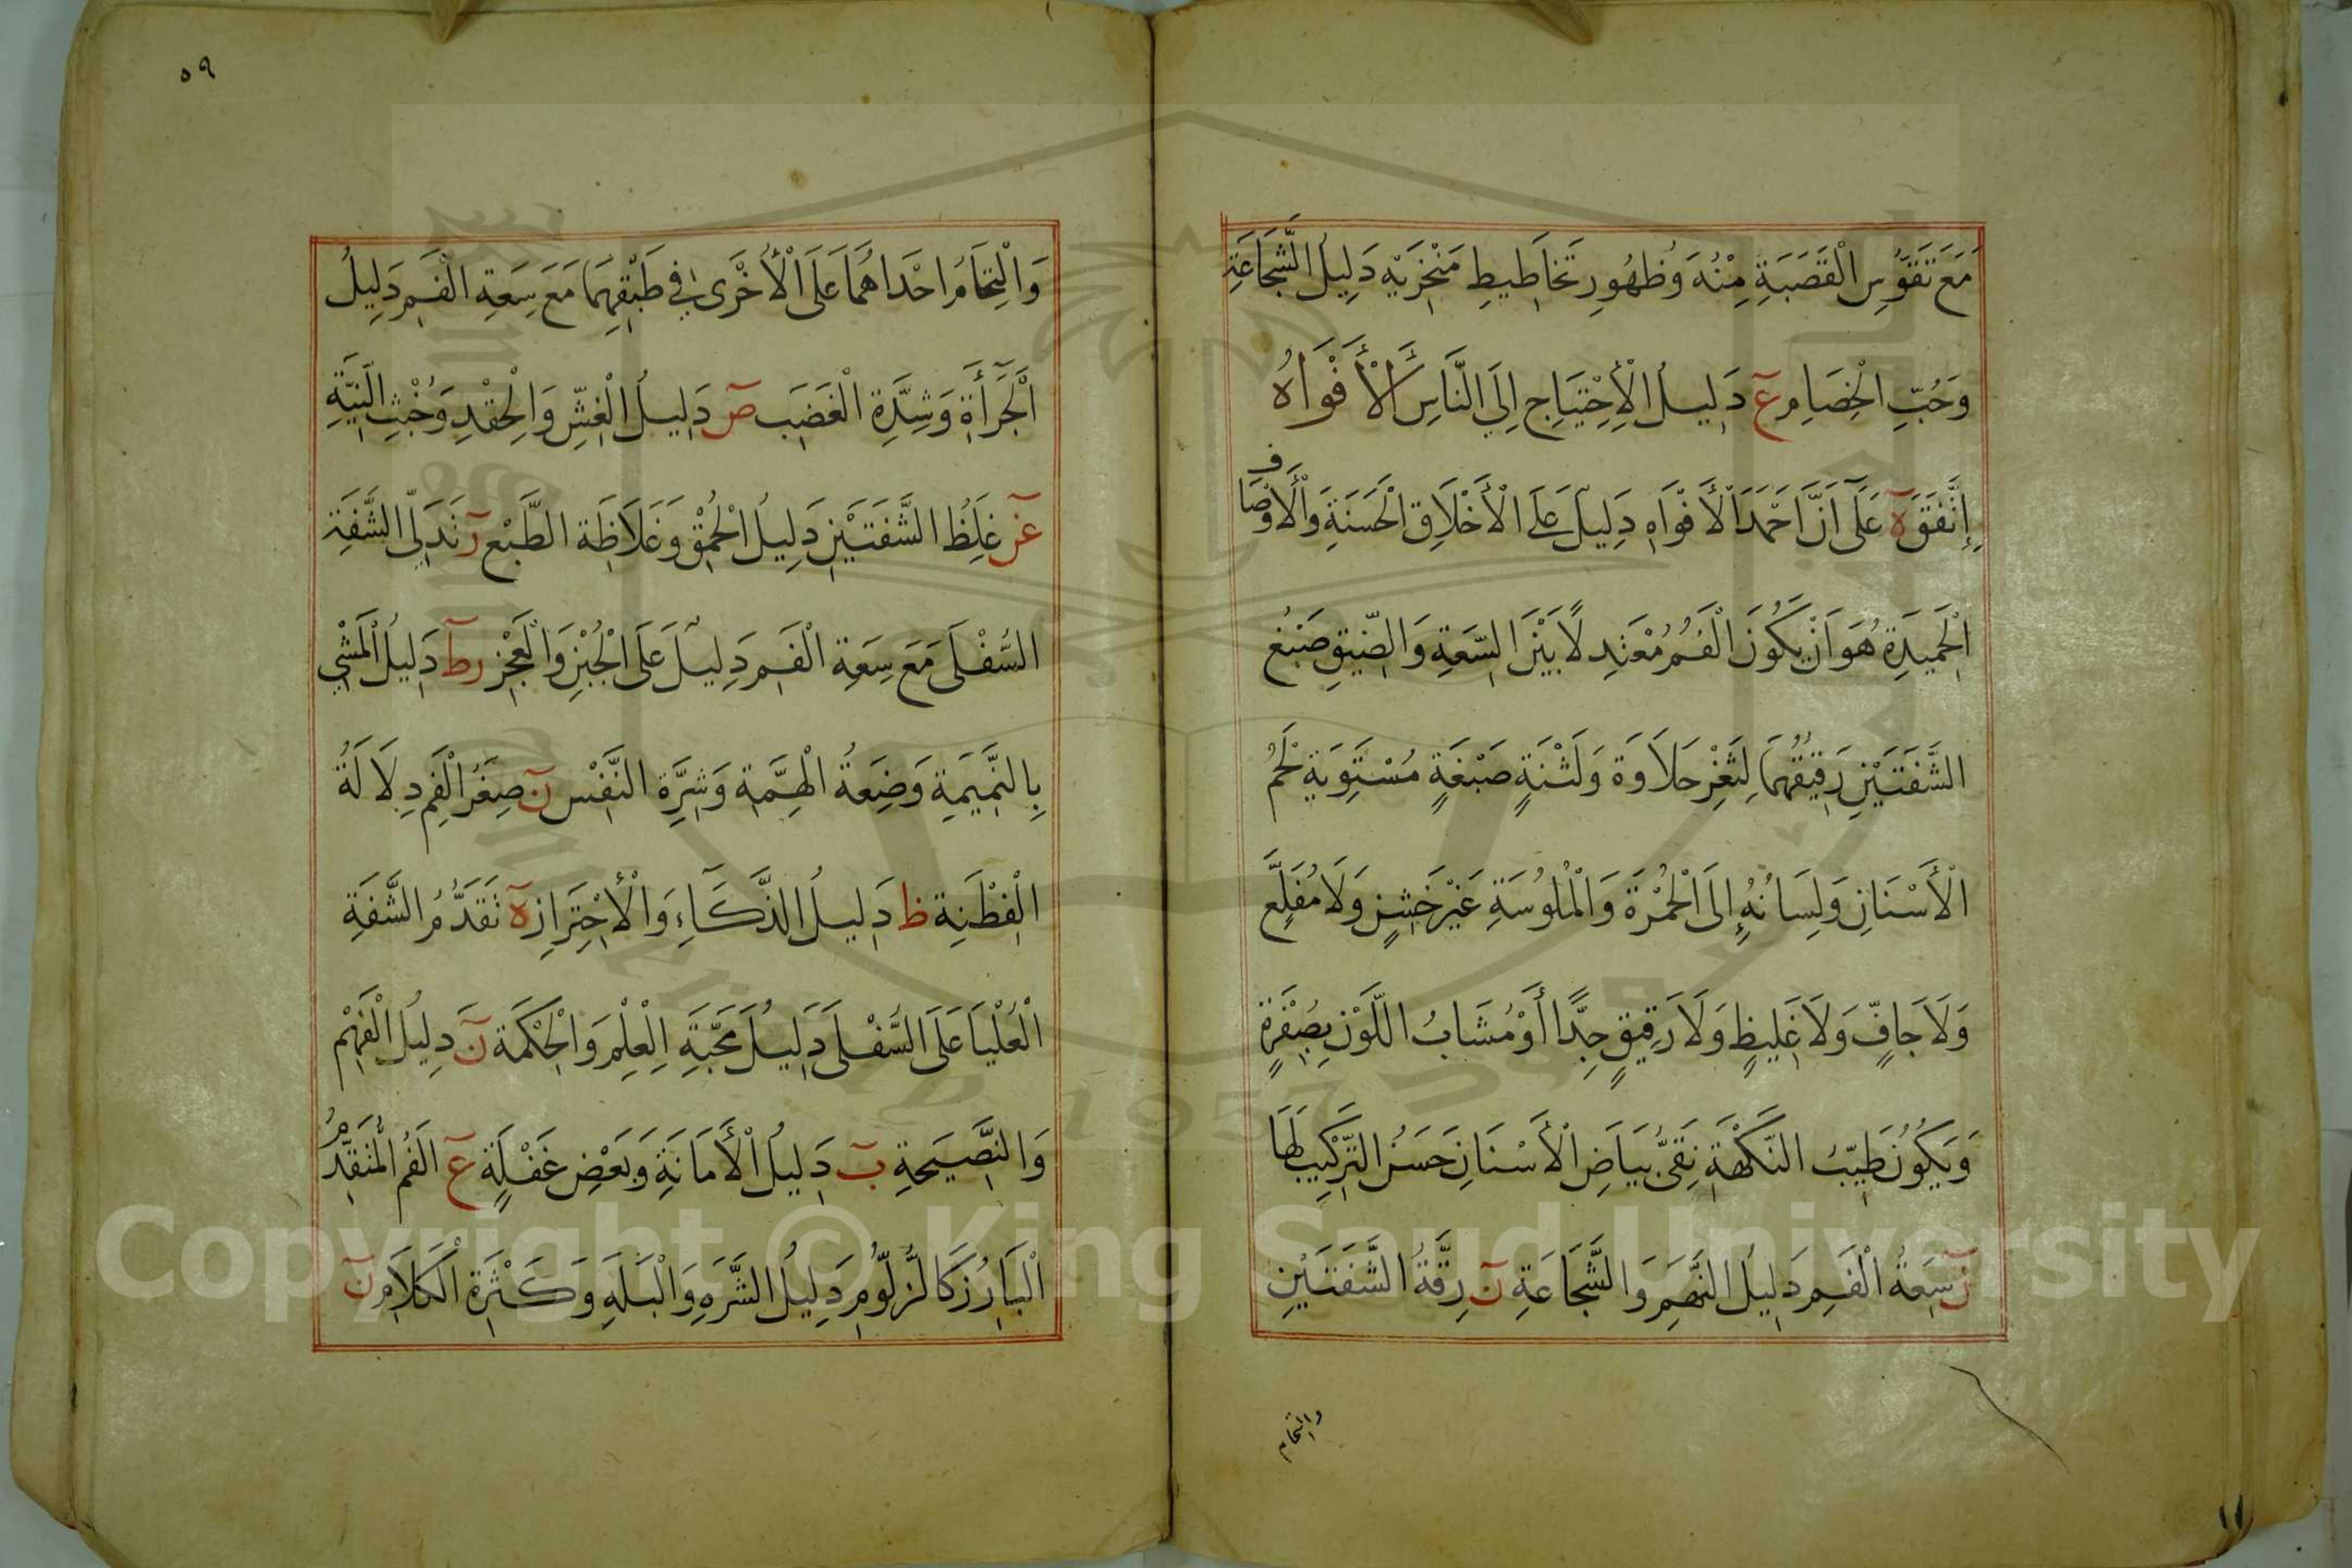 مَعَ تَقَوُّسِ الْقَصَبَةِ مِنْهُ وَظُهُورِ تَخَاطِيطِ مَنْخِرَيْهِ دَلِيلُ الشَّجَاعَةِ
وَحُبِّ الْخِصَامِ عَ دَلِيلُ الْاِحْتِيَاجِ اِلَى النَّاسِ الْأَفْوَاهُ
اِتَّفَقَ هَ عَلَى اَنَّ اَحْمَدَ الْأَفْوَاهِ دَلِيلَ عَلَى الْأَخْلَاقِ الْحَسَنَةِ وَالْأَوْصَافِ
الْحَمِيدَةِ هُوَ اَنْ يَكُونَ الْفَمُ مُعْتَدِلًا بَيْنَ السِّعَةِ وَالضِّيقِ صَبْغُ
الشَّفَتَيْنِ رَقِيقُهُمَا لِثَغْرِ حَلَاوَة وَلَثْنَةٍ صَبْغَةٍ مُسْتَوِيَةٍ لَحْمُ
الْأَسْنَانِ وَلِسَانُهُ إِلَى الْحُمْرَةِ وَالْمُلُوسَةِ غَيْرَ خَشِنٍ وَلَا مُفَلَّعٍ
وَلَا جَافٍّ وَلَا غَلِيظٍ وَلَا رَقِيقٍ جِدًّا أَوْ مُشَابُ اللَّوْنِ بِصُفْرَةٍ
وَيَكُونُ طَيِّبُ النَّكْهَةِ نَقِيُّ بَيَاضِ الْأَسْنَانِ حَسَنُ التَّرْكِيبِ لَهَا
نَ سِعَةُ الْفَمِ دَلِيلُ النَّهَمِ وَالشَّجَاعَةِ نَ رِقَّةُ الشَّفَتَيْنِ
والتحام
١١
٥٩
وَالْتِحَامُ اِحْدَاهُمَا عَلَى الْأُخْرَى فِي طَبْقِهِمَا مَعَ سِعَةِ الْفَمِ دَلِيلُ
الْجَرَأَةِ وَشِدَّةِ الْغَضَبِ صَ دَلِيلُ الْغِشِّ وَالْحِقْدِ وَخُبْثِ النِّيَّةِ
عز غِلَظُ الشَّفَتَيْنِ دَلِيلُ الْحُمْقِ وَغَلَاظَةِ الطَّبْعِ رَ تَدَلِّي الشَّفَةِ
السُّفْلَى مَعَ سِعَةِ الْفَمِ دَلِيلَ عَلَى الْجُبْنِ وَالْعَجْزِ رط دَلِيلُ الْمَشْيِ
بِالنَّمِيمَةِ وَضِعَةُ الْهِمَّةِ وَشِرَّةِ النَّفْسِ نَ صِغَرُ الْفَمِ دِلَالَةُ
الْفِطْنَةِ ظ دَلِيلُ الذَّكَاءِ وَالْاِحْتِرَازِ هَ تَقَدُّمُ الشَّفَةِ
الْعُلْيَا عَلَى السُّفْلَى دَلِيلُ مَحَبَّةِ الْعِلْمِ وَالْحِكْمَةِ نَ دَلِيلُ الْفَهْمِ
وَالنَّصِيحَةِ بَ دَلِيلُ الْأَمَانَةِ وَبَعْضِ غَفْلَةٍ عَ الْفَمُ الْمُتَقَدِّمُ
الْبَارِزُ كَالزُّلُّومِ دَلِيلُ الشَّرَهِ وَالْبَلَهِ وَكَثْرَةِ الْكَلَامِ نَ
Copyright © King Saud University
1957